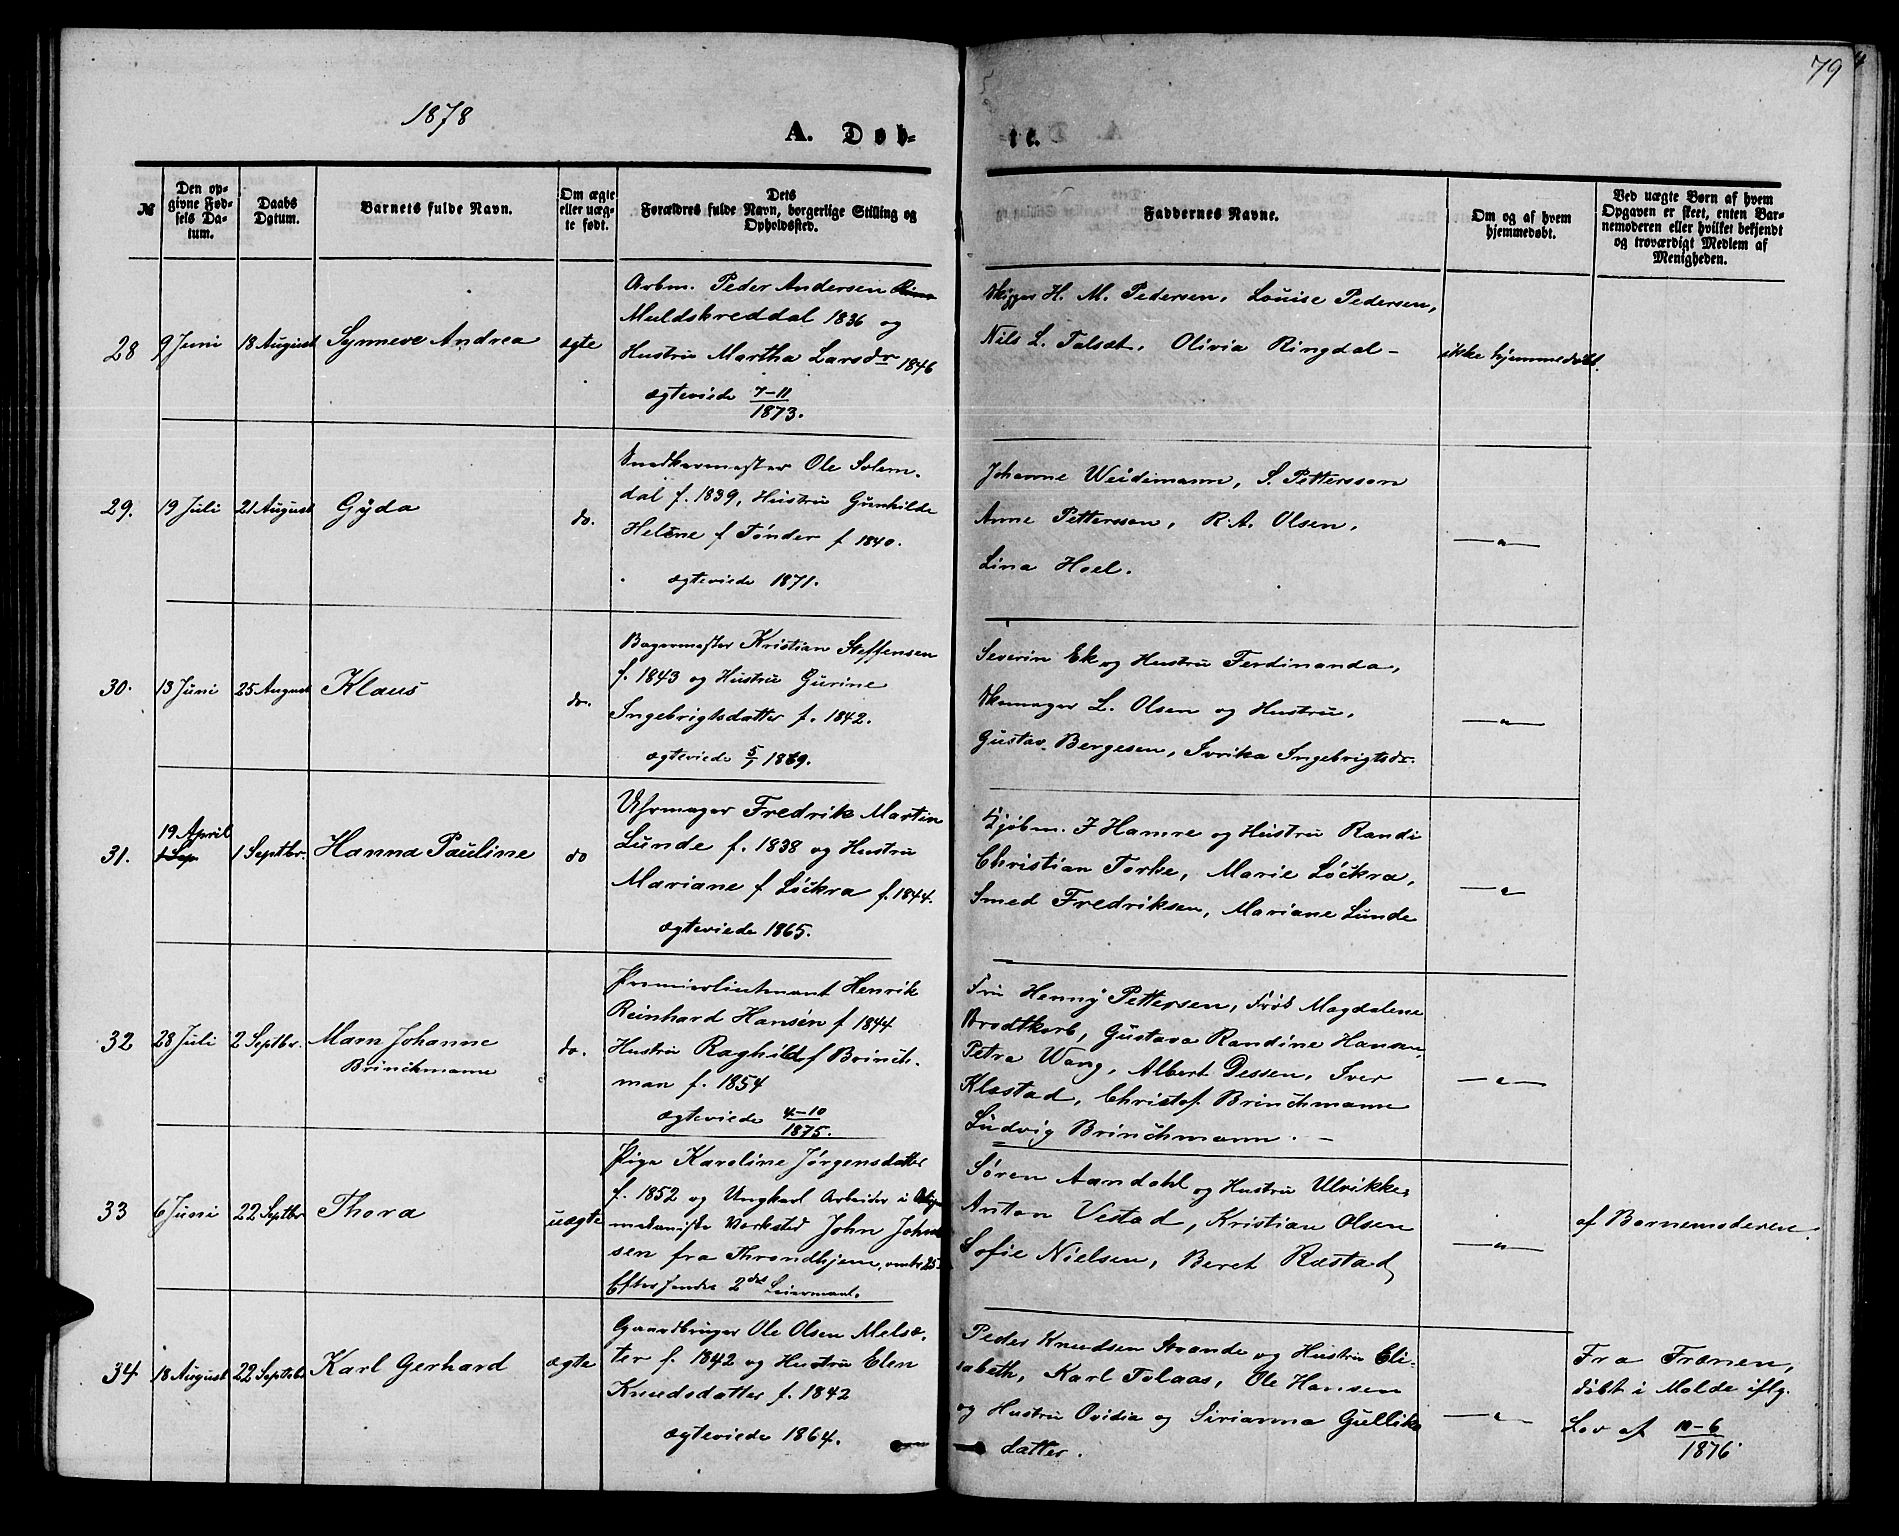 1878
A. Døb-
te.
79
№
Den op-
givne Fød-
sels Da-
tum.
Daabs
Datum.
Barnets fulde Navn.
Om ægte
eller uæg-
te født.
Dets
Forældres fulde Navn, borgerlige Stilling og
Opholdssted.
Faddernes Navne.
Om og af hvem
hjemmedøbt.
Ved uægte Børn af hvem
Opgaven er skeet, enten Bar-
nemoderen eller hvilket bekjendt
og troværdigt Medlem af
Menigheden.
28 9 Juni 18 August Synneve Andrea ægte
Arbm. Peder Andersen
Muldskreddal 1836 og
Hustru Martha Larsdr 1846
ægteviede 7-11
1873.
Skipper H. M. Pedersen, Louise Pedersen,
Nils L. Talsæt, Olivia Ringdal -
ikke hjemmedøbt.
29. 19 Juli 21 August Gyda do.
Snedkermester Ole Solem-
dal f. 1839, Hustru Gunhilde
Helene f Tønder f 1840.
ægteviede 1871.
Johanne Weidemann, S. Pettersson
Anne Pettersson, R. A. Olsen,
Lina Hoel.
— " —
30. 13 Juni 25 August Klaus do.
Bagermester Kristian Steffensen
f. 1843 og Hustru Gurine
Ingebrigtsdatter f. 1842.
ægteviede 5/7 1869.
Severin Ek og Hustru Ferdinanda,
Skomager L. Olsen og Hustru,
Gustav Bergesen, Ivrika Ingebrigtsdr.
— " —
31. 19 April 1 Sep 1 Septbr. Hanna Pauline do
Uhrmager Fredrik Martin
Lunde f. 1838 og Hustru
Mariane f Løckra f. 1844.
ægteviede 1865.
Kjøbm. J Hamre og Hustru Randi
Christian Torke, Marie Løckra,
Smed Fredriksen, Mariane Lunde
— " —
32 28 Juli 2 Septbr. Marn Johanne
Brinchmann
do.
Premierlieutnant Henrik
Reinhard Hansen f 1844
Hustru Raghild f Brinch-
man f. 1854
ægteviede 4-10
1875.
Fru Henny Pettersen, Frøk Magdalene
Brodtkorb, Gustava Randine Hansen,
Petra Wang, Albert Dessen, Iver
Klæstad, Christof. Brinchmann
Ludvig Brinchmann. -
— " —
33 6 Juni 22 Septbr Thora uægte
Pige Karoline Jørgensdatter
f. 1852 og Ungkarl Arbeider i
mekaniske Værksted John John
sen fra Throndhjem, omtr 25
Efter Sendes 2det Leiermaal.
Søren Aandahl og Hustru Ulrikke,
Anton Vestad, Kristian Olsen
Sofie Nielsen, Beret Ræstad,
— " —
af Barnemoderen.
34 18 August 22 Septbr Karl Gerhard ægte
Gaardbruger Ole Olsen Melsæ-
ter f. 1842 og Hustru Elen
Knudsdatter f. 1842
ægteviede 1864.
Peder Knudsen Strande og Hustru Eli-
sabeth, Karl Tolaas, Ole Hansen
og Hustru Ovidia og Sirianna Gulliks
datter.
— " —
Fra Frænen,
døbt i Molde iflg.
Lov af 10-6
1876.